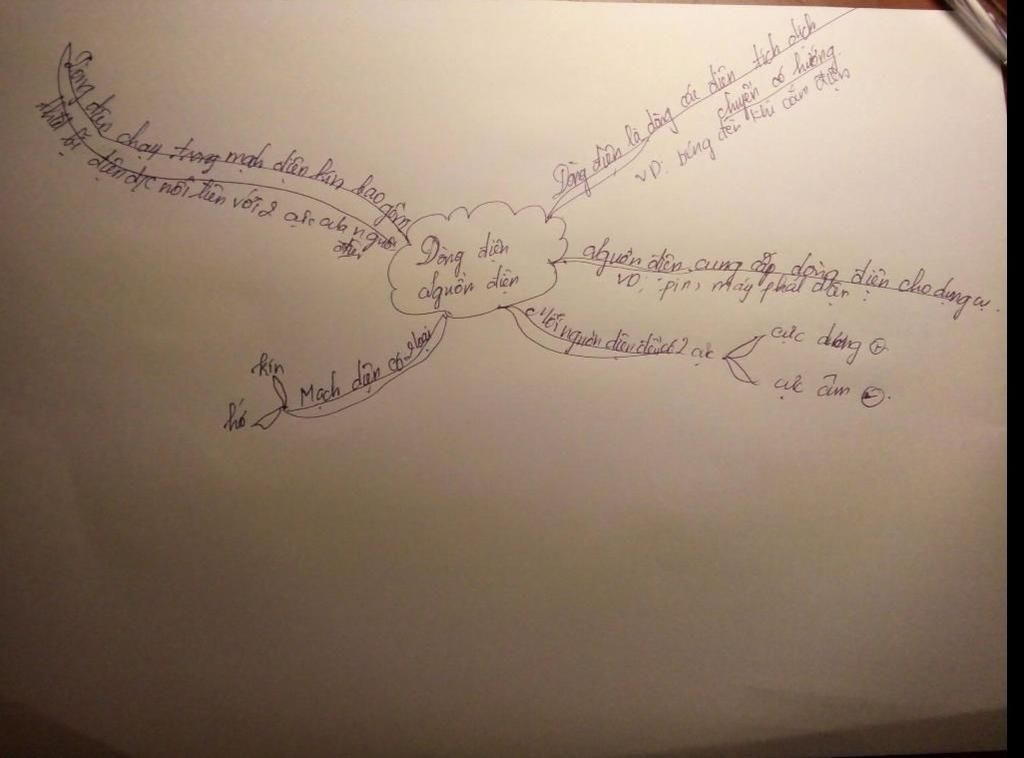 Dòng điện
Nguồn điện
Dòng điện là dòng các điện tích dịch
chuyển có hướng.
VD: bóng đèn khi cắm điện
Nguồn điện cung cấp dòng điện cho dụng cụ.
VD: pin, máy phát điện
Mỗi nguồn điện đều có 2 cực
cực dương +
cực âm -.
Mạch điện có 2 loại
kín
hở
Dòng điện chạy trong mạch điện kín bao gồm
thiết bị điện đc nối liền với 2 cực của nguồn
điện